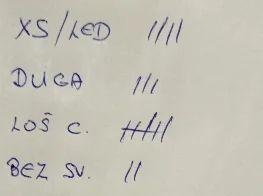 XS/LED ||||
DUGA |||
LOŠ C. ̶|̶|̶|̶|̶ ||
BEZ SV. ||